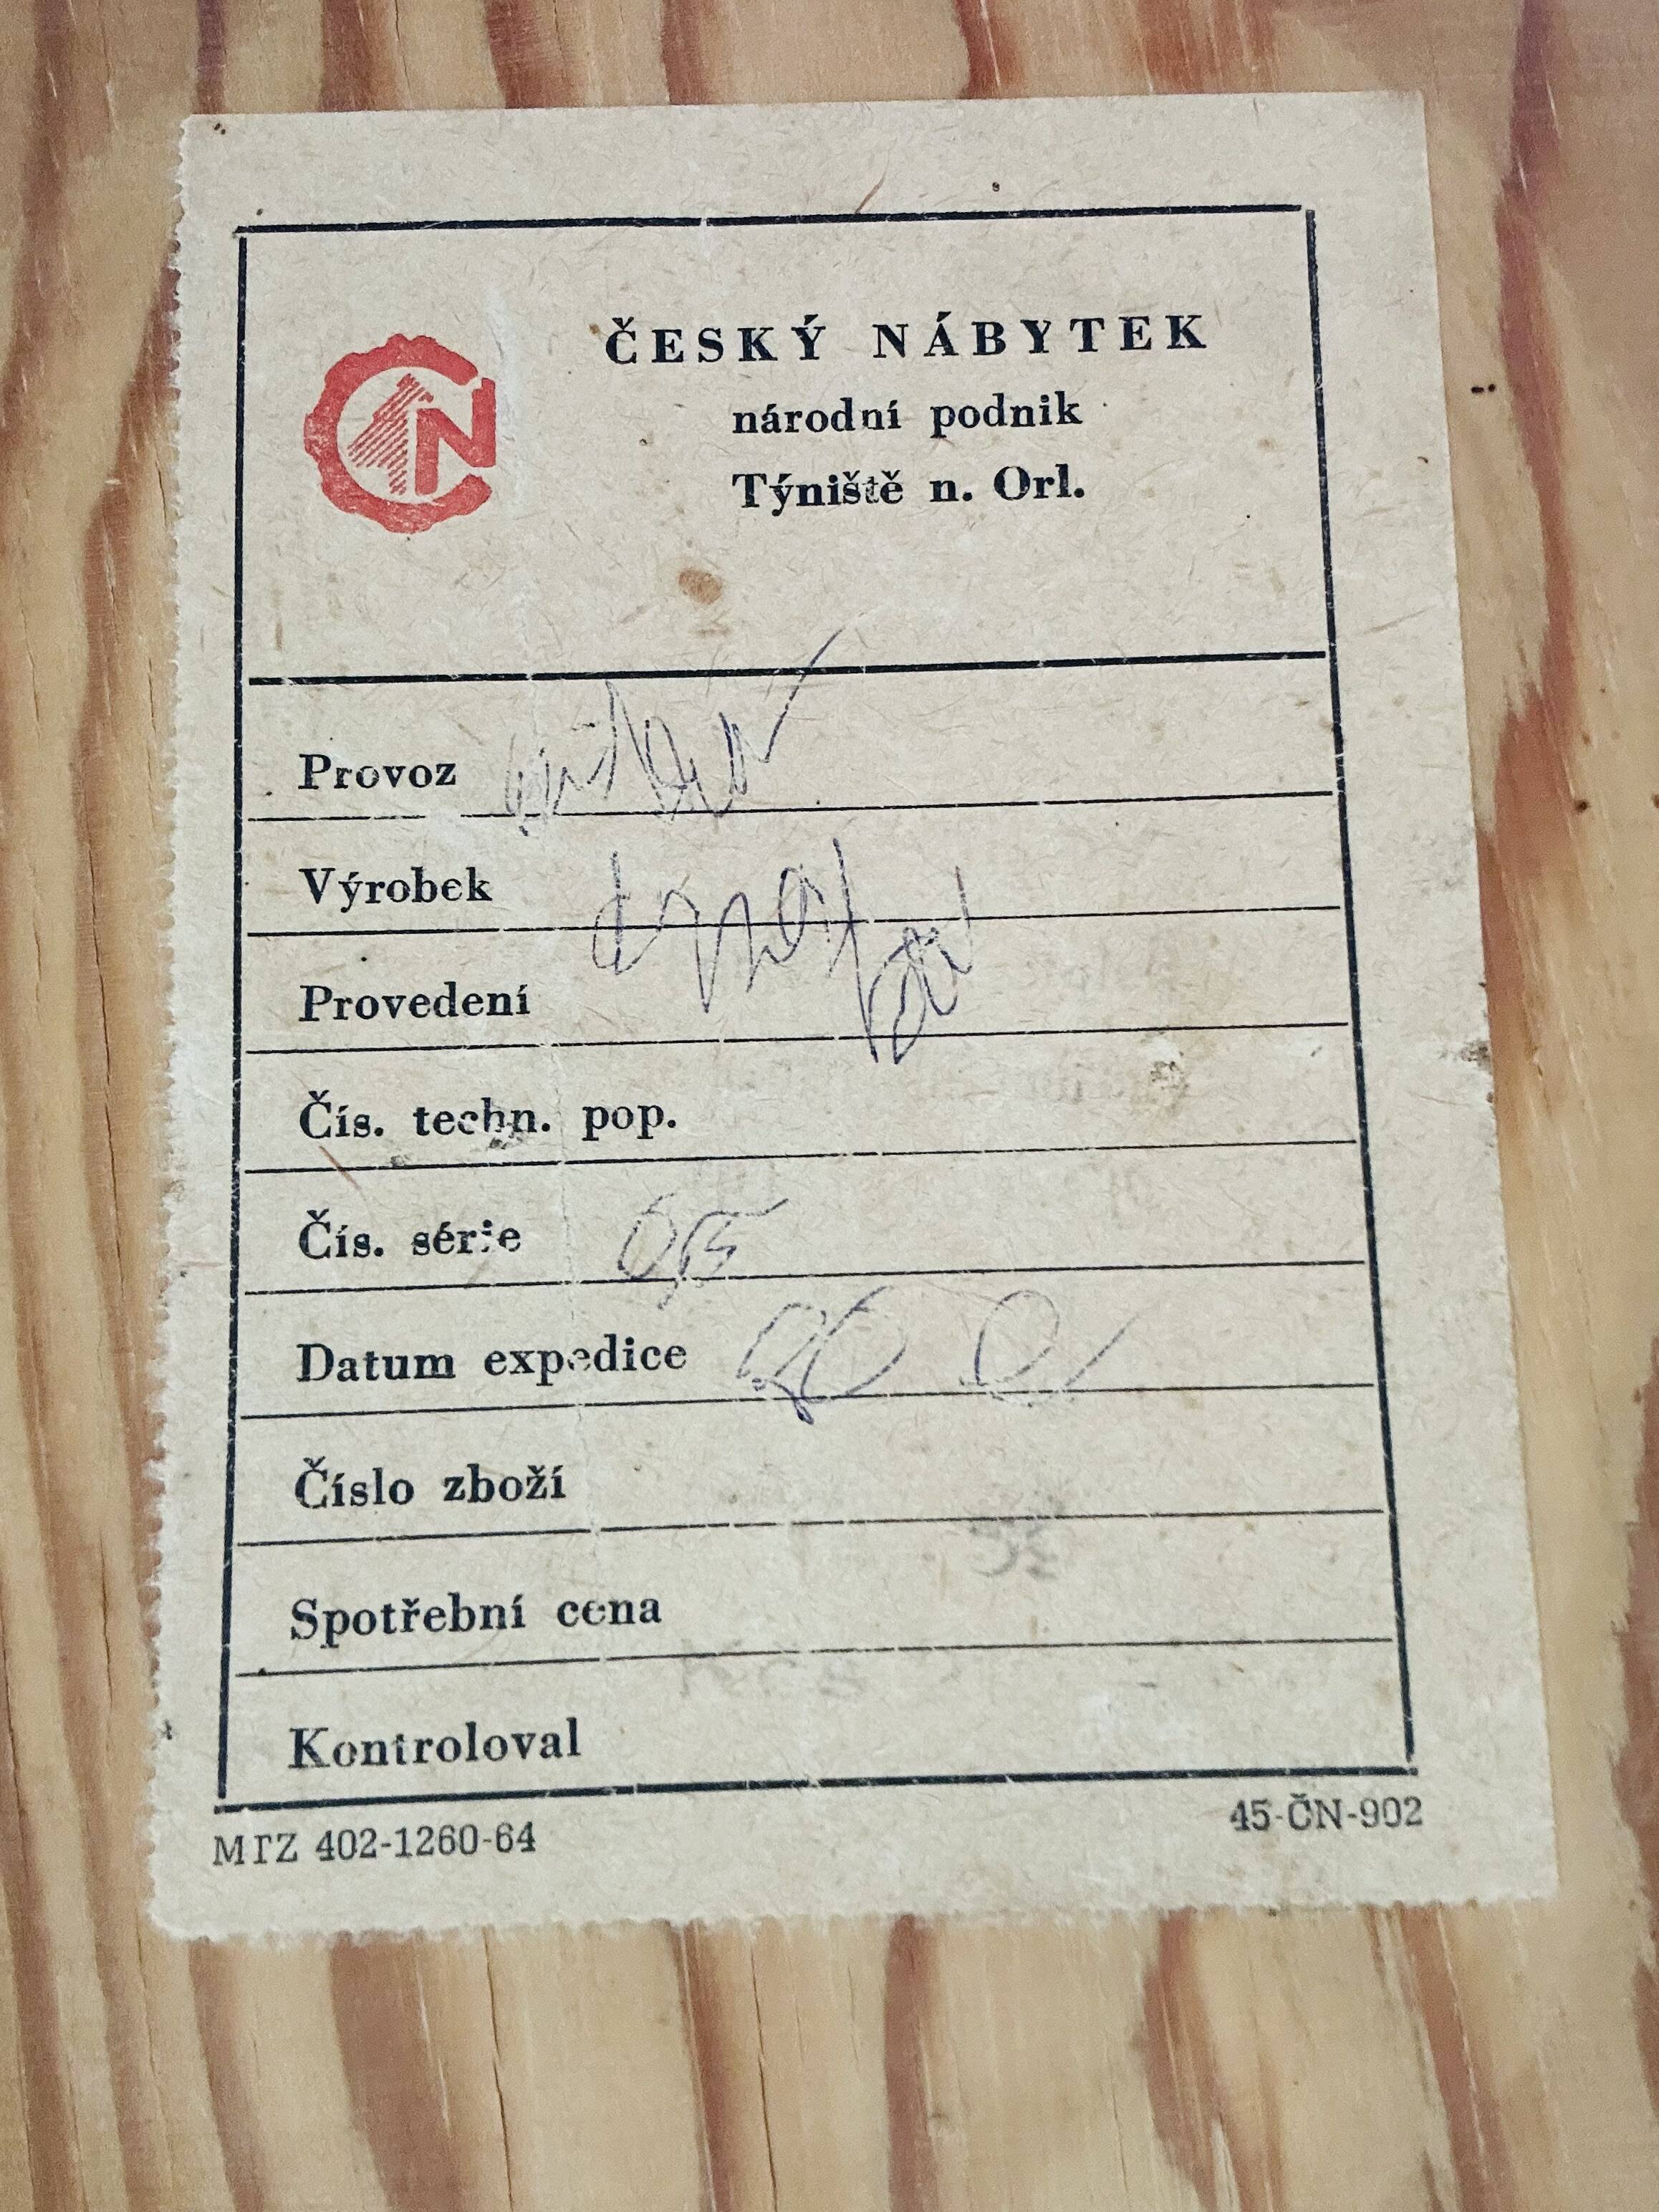 ČN
ČESKÝ NÁBYTEK
národní podnik
Týniště n. Orl.
Provoz
Výrobek
Provedení
Čís. techn. pop.
Čís. série
Datum expedice
Číslo zboží
Spotřební cena
Kontroloval
MTZ 402-1260-64
45-ČN-902